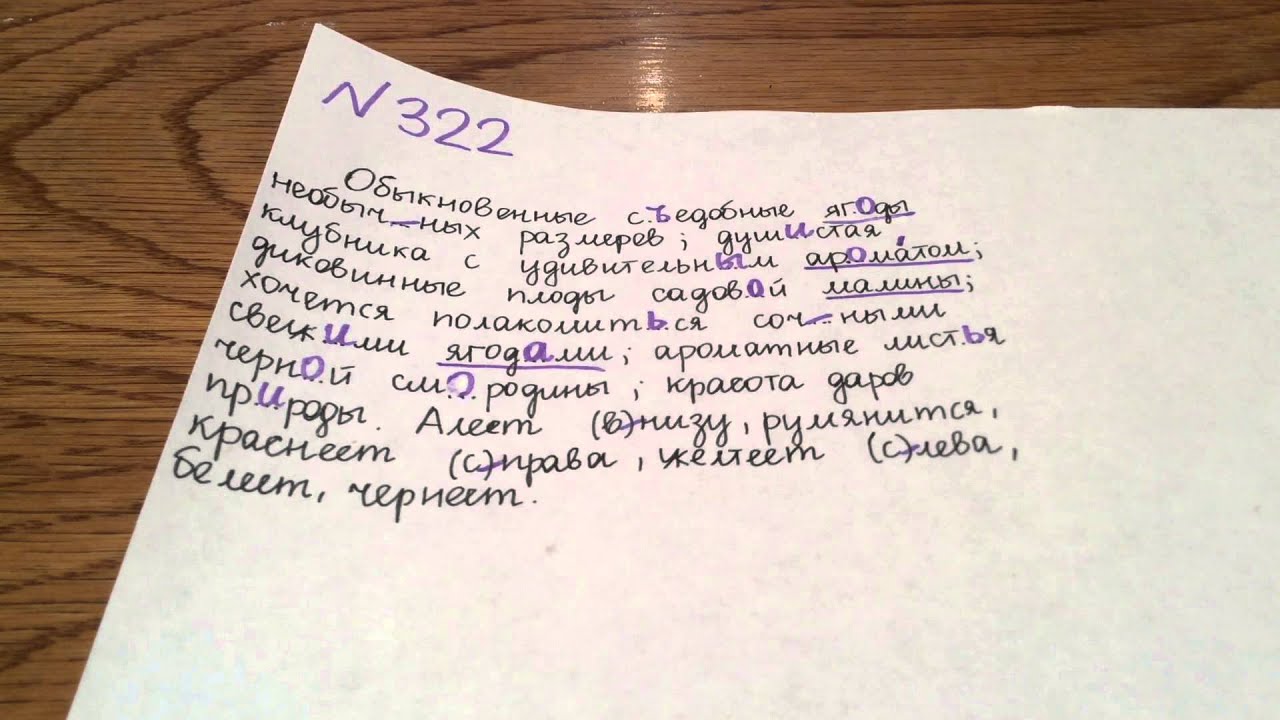 N 322
Обыкновенные с.ъедобные яг.о.ды
необыч_ных размерев; душ.и.стая
клубника с удивительн.ы.м ар.о.матом;
диковинные плоды садов.о.й малины;
хочется полакомит.ь.ся соч_ными
свеж.и.ми ягод.а.ми; ароматные лист.ь.я
черн.о.й см.о.родины; красота даров
пр.и.роды. Алеет (в)низу, румянится,
краснеет (с)права, желтеет (с)лева,
белеет, чернеет.